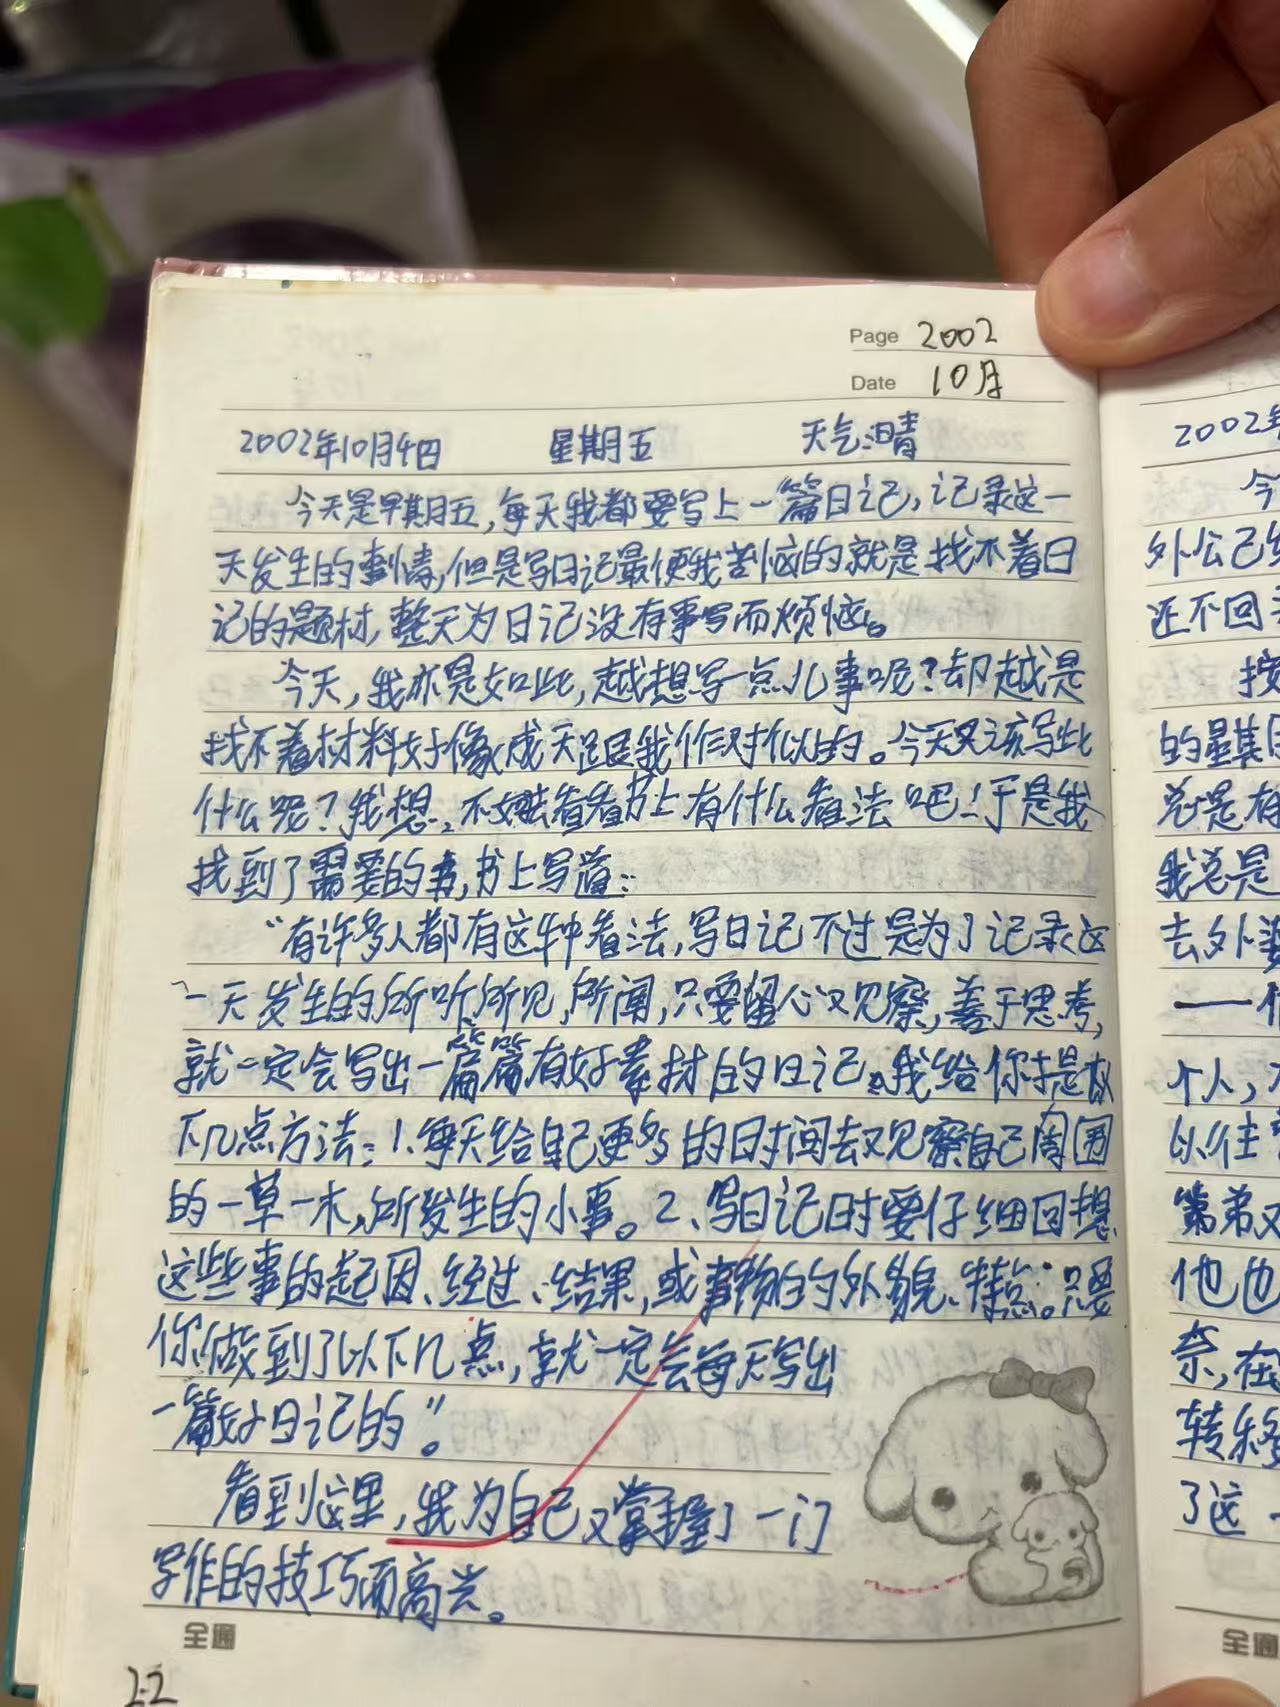 Page 2002
Date 10月
2002年10月4日 星期五 天气:晴
今天是早期五,每天我都要写上一篇日记,记录这一
天发生的事情,但是写日记最使我苦恼的就是找不着日
记的题材,整天为日记没有事写而烦恼。
今天,我亦是如此,越想写一点儿事呢?却越是
找不着材料好像成天跟我作对似的。今天又该写些
什么呢?我想,不如去看看书上有什么看法吧!于是我
找到了需要的书,书上写道:
“有许多人都有这种看法,写日记不过是为了记录这
一天发生的所听所见,所闻,只要留心观察,善于思考,
就一定会写出一篇篇有好素材的日记。我给你提故
下几点方法:1.每天给自己更多的时间去观察自己周围
的一草一木,所发生的小事。2、写日记时要仔细回想
这些事的起因、经过、结果,或事物的外貌、特点。只要
你做到了以下几点,就一定会每天写出
一篇好日记的”。
看到这里,我为自己又掌握了一门
写作的技巧而高兴。
全通
22
2002年
今
外公已
还不回
按
的星期
总是有
我总是
去外婆
——
个人,
以往
第弟又
他也
奈,在
转移
了这一
全通